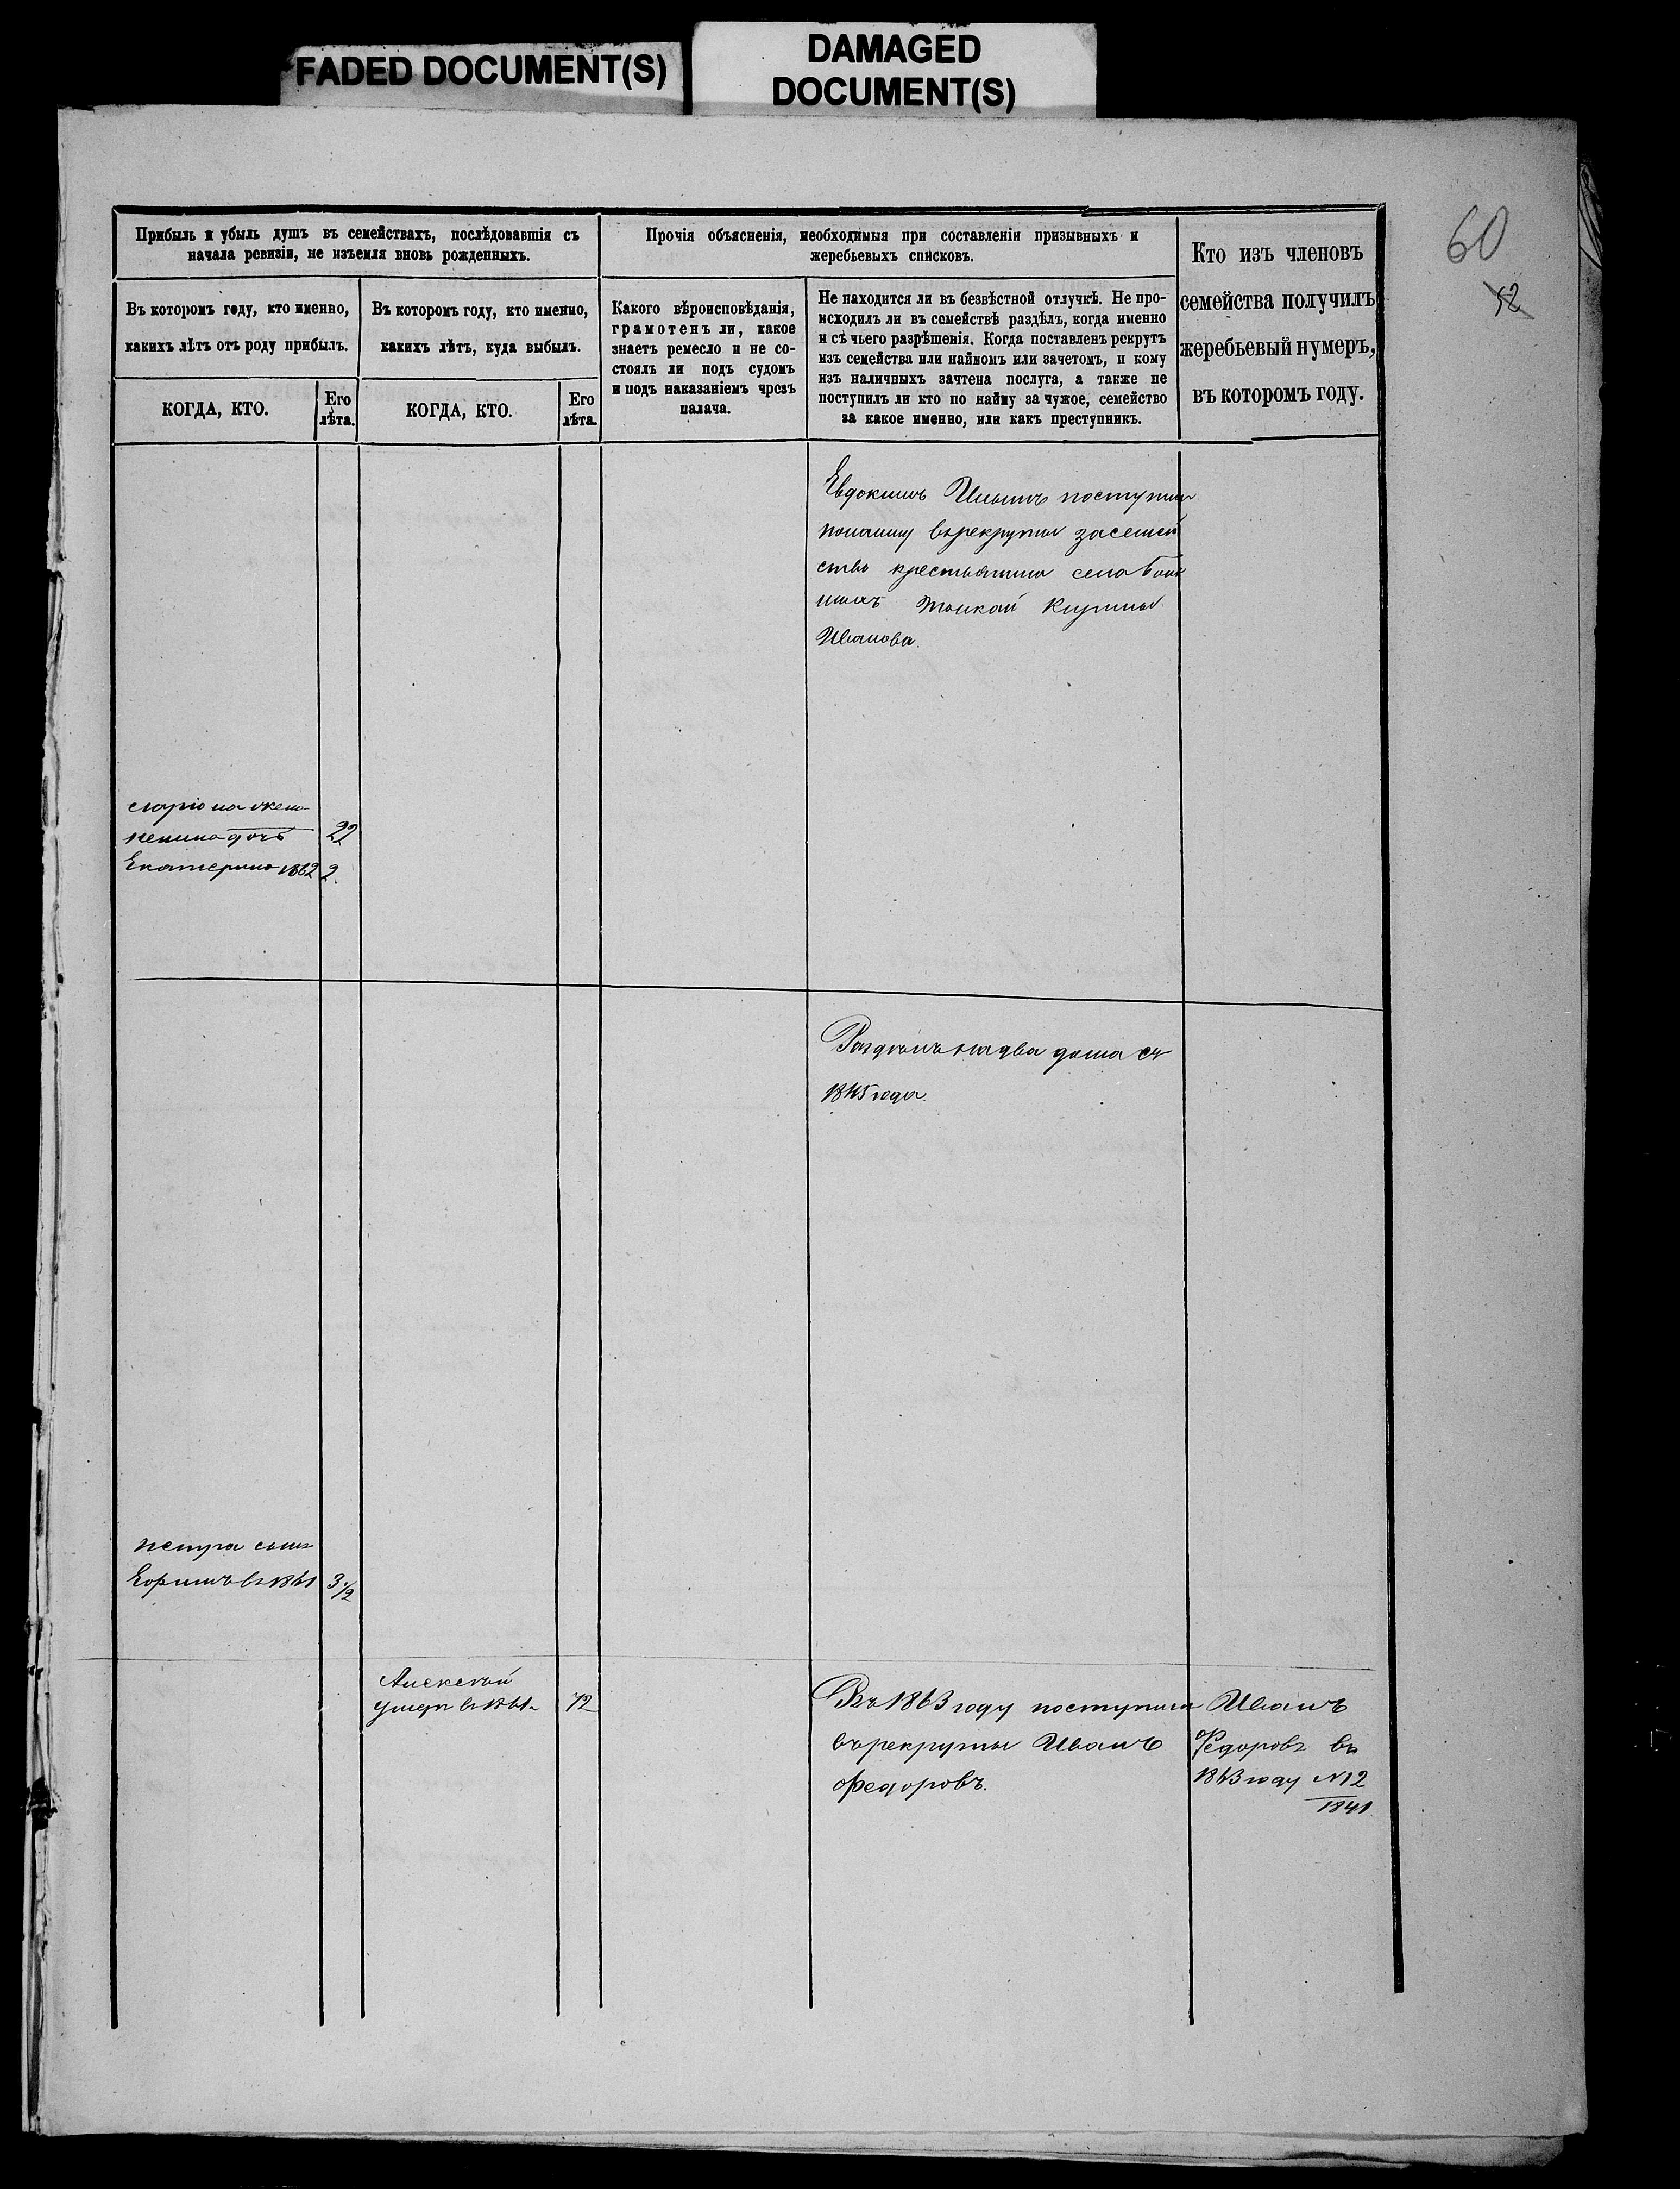 FADED DOCUMENT(S)
DAMAGED
DOCUMENT(S)
60
12
Прибыль и убыль душъ въ семействахъ, послѣдовавшія съ
начала ревизіи, не изъемля вновь рожденныхъ.
Въ которомъ году, кто именно,
какихъ лѣтъ отъ роду прибылъ.
КОГДА, КТО.
Его
лѣта.
Въ которомъ году, кто именно,
какихъ лѣтъ, куда выбылъ.
КОГДА, КТО.
Его
лѣта.
Прочія объясненія, необходимыя при составленіи призывныхъ и
жеребьевыхъ списковъ.
Какого вѣроисповѣданія,
грамотенъ ли, какое
знаетъ ремесло и не со-
стоялъ ли подъ судомъ
и подъ наказаніемъ чрезъ
палача.
Не находится ли въ безвѣстной отлучкѣ. Не про-
исходилъ ли въ семействѣ раздѣлъ, когда именно
и съ чьего разрѣшенія. Когда поставленъ рекрутъ
изъ семейства или наймомъ или зачетомъ, и кому
изъ наличныхъ зачтена послуга, а также не
поступилъ ли кто по найму за чужое, семейство
за какое именно, или какъ преступникъ.
Кто изъ членовъ
семейства получилъ
жеребьевый нумеръ,
въ которомъ году.
Евдокимъ Ильинъ поступил
понайму върекруты засемей
ство крестьянина села
Кузьмы
Иванова.
жена
дочь 22
Екатерина 1862 2.
Раздѣлъ надва дома съ
1845 года.
петра сынъ
Ефимъ въ 1861 3 1/2
Алексѣй
умеръ въ 1861. 72
Въ 1863 году поступилъ
въ рекруты Иванъ
Федоровъ.
Иванъ
Федоровъ въ
1863 году №12
1841